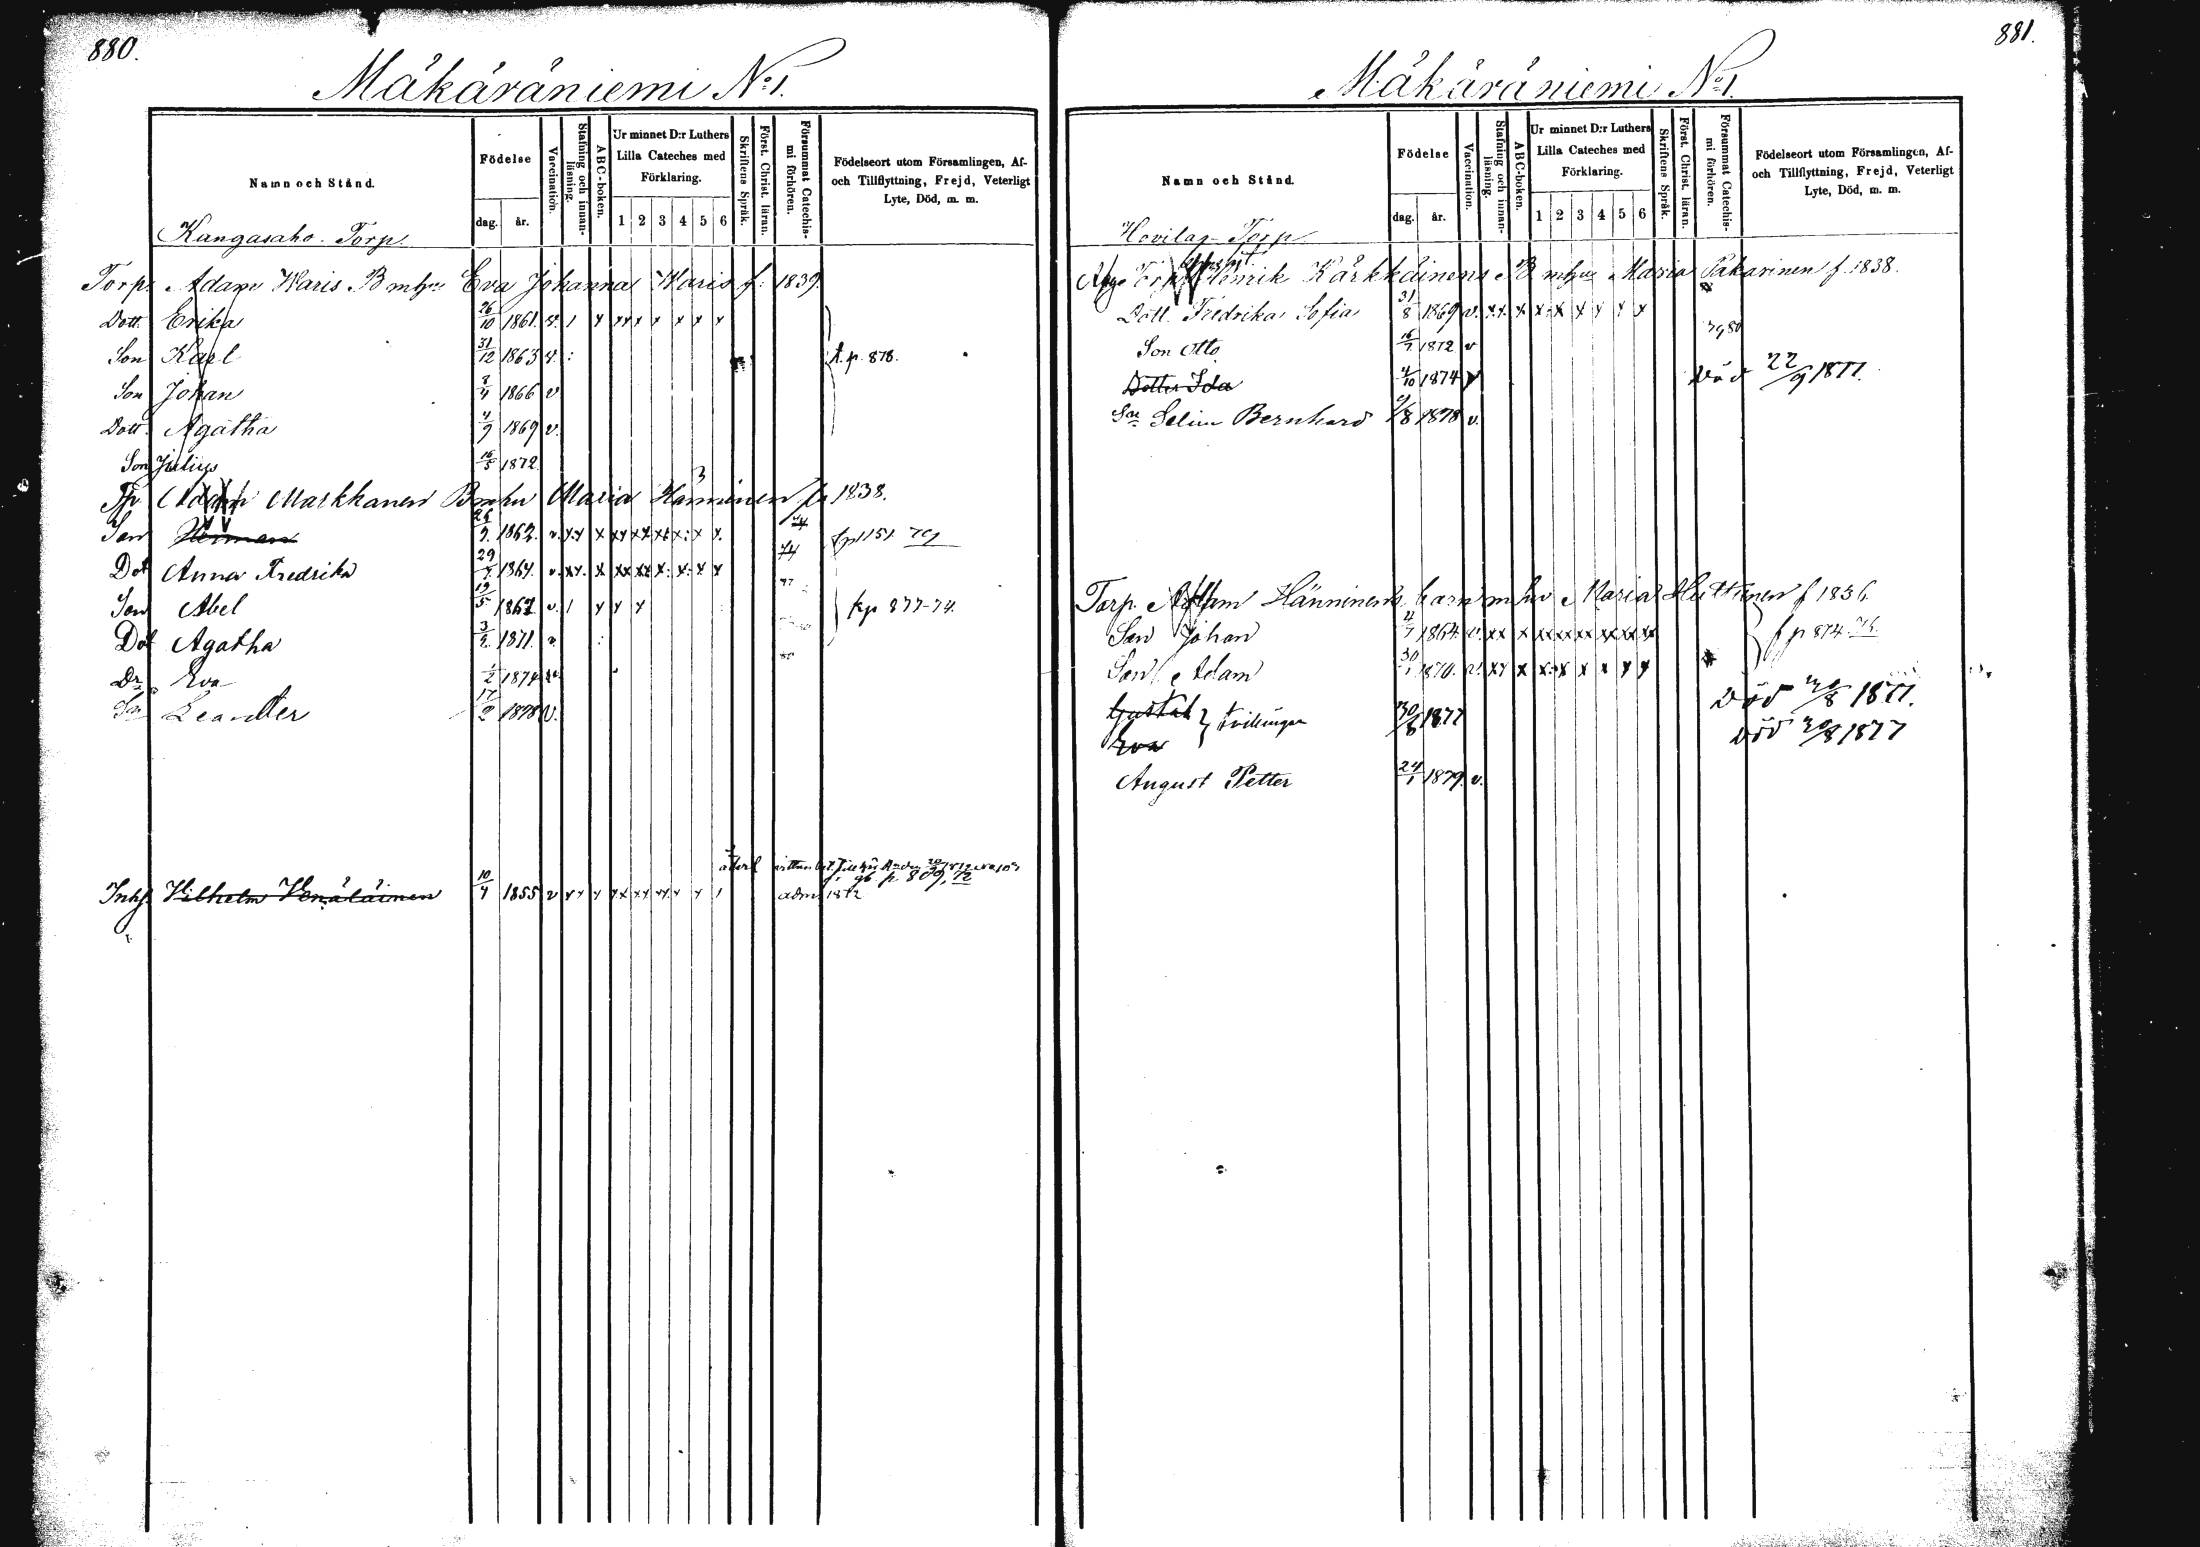 880.
Mäkäräniemi No 1.
Namn och Stånd.
Födelse
dag. år.
Vaccination.
Stafning och innanläsning.
ABC-boken.
Ur minnet D:r Luthers Lilla Cateches med Förklaring.
1 2 3 4 5 6
Skriftens Språk.
Först. Christ. läran.
Försummat Catechismi förhören.
Födelseort utom Församlingen, Af- och Tillflyttning, Frejd, Veterligt Lyte, Död, m. m.
Kangasaho Torp.
Torp. Adam Waris B mhu Eva Johanna Waris f: 1839.
Dott. Erika 26/10 1861. v. 1 x xx x x x x x
Son Karl 31/12 1863 v. : f. p. 878.
Son Johan 8/4 1866 v
Dott. Agatha 4/9 1869 v.
Son Julius 16/5 1872
Tp Adam Markkanen B mhu Maria Hänninen f 1838.
Son Herman 26/9 1862. v. xx x fp 1151 79
Dot Anna Fredrika 29/7 1864. v. xx. x
Son Abel 19/5 1867 v. 1 x x x fp 877-74.
Dot Agatha 3/2 1871. v.
Dr Eva 1/2 1874
Son Leander 17/2 1878 v.
Inhs. Wilhelm Venäläinen 10/4 1855 v xx x xx xx xx x x 1 adm. 1872
p. 809, 72
881.
Mäkäräniemi No 1.
Namn och Stånd.
Födelse
dag. år.
Vaccination.
Stafning och innanläsning.
ABC-boken.
Ur minnet D:r Luthers Lilla Cateches med Förklaring.
1 2 3 4 5 6
Skriftens Språk.
Först. Christ. läran.
Försummat Catechismi förhören.
Födelseort utom Församlingen, Af- och Tillflyttning, Frejd, Veterligt Lyte, Död, m. m.
Hovila Torp
Torp. Henrik Kärkkäinens B mhu Maria Pakarinen f. 1838.
Dott. Fredrika Sofia 31/8 1869 v. xx x x x x x x x
Son Otto 16/7 1872 v
Dotter Ida 4/10 1874 v Död 22/9 1877.
Son Selim Bernhard 9/8 1878 v.
Torp. Adam Hänninens barn m hu Maria Huttunen f 1836
Son Johan 4/7 1864 v. xx x xx xx xx xx xx xx f p 874 76.
Son Adam 30/1 1870. v. xx x x x x x x x
Gustaf } tvillingar 30/6 1877 Död 20/8 1877.
Eva Död 20/8 1877
August Petter 24/1 1879. v.